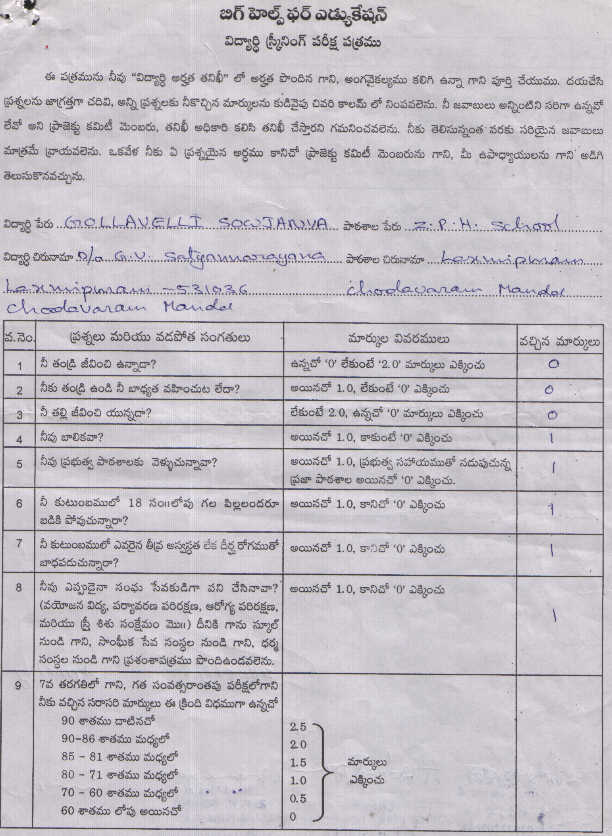 బిగ్ హెల్ప్ ఫర్ ఎడ్యుకేషన్
విద్యార్థి స్క్రీనింగ్ పరీక్ష పత్రము
ఈ పత్రమును నీవు "విద్యార్థి అర్హత తనిఖీ" లో అర్హత పొందిన గాని, అంగవైకల్యము కలిగి ఉన్నా గాని పూర్తి చేయుము. దయచేసి
ప్రశ్నలను జాగ్రత్తగా చదివి, అన్ని ప్రశ్నలకు నీకొచ్చిన మార్కులను కుడివైపు చివరి కాలమ్ లో నింపవలెను. నీ జవాబులు అన్నింటిని సరిగా ఉన్నవో
లేవో అని ప్రాజెక్టు కమిటీ మెంబరు, తనిఖీ అధికారి కలిసి తనిఖీ చేస్తారని గమనించవలెను. నీకు తెలిసున్నంత వరకు సరియైన జవాబులు
మాత్రమే వ్రాయవలెను. ఒకవేళ నీకు ఏ ప్రశ్నయైన అర్థము కానిచో ప్రాజెక్టు కమిటీ మెంబరును గాని, మీ ఉపాధ్యాయులను గాని అడిగి
తెలుసుకొనవచ్చును.
విద్యార్థి పేరు GOLLAVELLI SOWJANYA పాఠశాల పేరు Z.P.H. School
విద్యార్థి చిరునామా D/o G.V. Satyannarayana పాఠశాల చిరునామా Laxmipuram
Laxmipuram -531036 Chodavaram Mandal
Chodavaram Mandal
వ.నెం. ప్రశ్నలు మరియు వడపోత సంగతులు మార్కుల వివరములు వచ్చిన మార్కులు
1 నీ తండ్రి జీవించి ఉన్నాడా? ఉన్నచో '0' లేకుంటే '2.0' మార్కులు ఎక్కించు 0
2 నీకు తండ్రి ఉండి నీ బాధ్యత వహించుట లేదా? అయినచో 1.0, లేకుంటే '0' ఎక్కించు 0
3 నీ తల్లి జీవించి యున్నదా? లేకుంటే 2.0, ఉన్నచో '0' మార్కులు ఎక్కించు 0
4 నీవు బాలికవా? అయినచో 1.0, కాకుంటే '0' ఎక్కించు 1
5 నీవు ప్రభుత్వ పాఠశాలకు వెళ్ళుచున్నావా? అయినచో 1.0, ప్రభుత్వ సహాయముతో నడుపుచున్న 1
ప్రజా పాఠశాల అయినచో '0' ఎక్కించు.
6 నీ కుటుంబములో 18 సం॥లోపు గల పిల్లలందరూ అయినచో 1.0, కానిచో '0' ఎక్కించు 1
బడికి పోవుచున్నారా?
7 నీ కుటుంబములో ఎవరైన తీవ్ర అస్వస్థత లేక దీర్ఘ రోగముతో అయినచో 1.0, కానిచో '0' ఎక్కించు 1
బాధపడుచున్నారా?
8 నీవు ఎప్పుడైనా సంఘ సేవకుడిగా పని చేసినావా? అయినచో 1.0, కానిచో '0' ఎక్కించు 1
(వయోజన విద్య, పర్యావరణ పరిరక్షణ, ఆరోగ్య పరిరక్షణ,
మరియు స్త్రీ శిశు సంక్షేమం మొ॥) దీనికి గాను స్కూల్
నుండి గాని, సాంఘీక సేవ సంస్థల నుండి గాని, ధర్మ
సంస్థల నుండి గాని ప్రశంశాపత్రము పొందిఉండవలెను.
9 7వ తరగతిలో గాని, గత సంవత్సరాంతపు పరీక్షలోగాని
నీకు వచ్చిన సరాసరి మార్కులు ఈ క్రింది విధముగా ఉన్నచో
90 శాతము దాటినచో 2.5
90-86 శాతము మధ్యలో 2.0
85 - 81 శాతము మధ్యలో 1.5 మార్కులు
80 - 71 శాతము మధ్యలో 1.0 ఎక్కించు
70 - 60 శాతము మధ్యలో 0.5
60 శాతము లోపు అయినచో 0